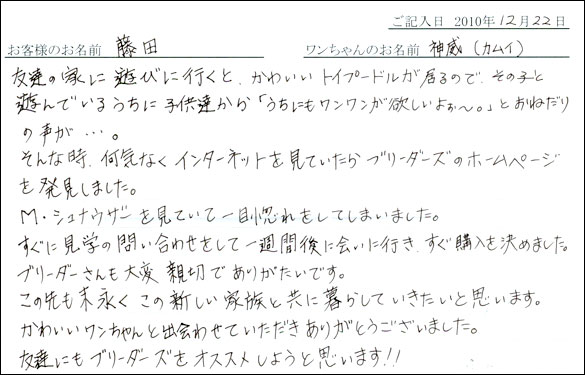 ご記入日 2010年12月22日
お客様のお名前 藤田 ワンちゃんのお名前 神威(カムイ)
友達の家に遊びに行くと、かわいいトイプードルが居るので、その子と
遊んでいるうちに子供達から「うちにもワンワンが欲しいよぉ〜。」とおねだり
の声が…。
そんな時、何気なくインターネットを見ていたらブリーダーズのホームページ
を発見しました。
M・シュナウザーを見ていて一目惚れをしてしまいました。
すぐに見学の問い合わせをして一週間後に会いに行き、すぐ購入を決めました。
ブリーダーさんも大変親切でありがたいです。
この先も末永くこの新しい家族と共に暮らしていきたいと思います。
かわいいワンちゃんと出会わせていただきありがとうございました。
友達にもブリーダーズをオススメしようと思います!!